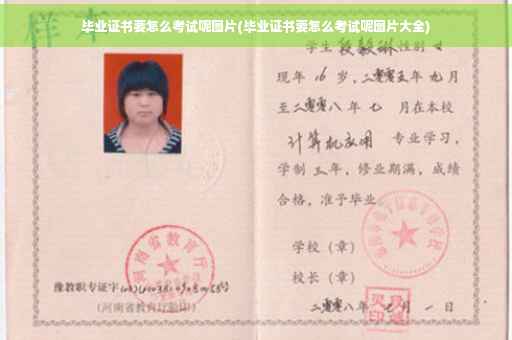 毕业证书要怎么考试呢图片(毕业证书要怎么考试呢图片大全)
样本
学生 段毅琳 性别 女
现年 16 岁,二零零五年 九月
至二零零八年 七 月在本校
计算机应用 专业学习,
学制 三年,修业期满,成绩
合格,准予毕业
学校(章)
校长(章)
二零零八年 月 一 日
河南省教育厅
豫教职专证字
(河南省教育厅验印)